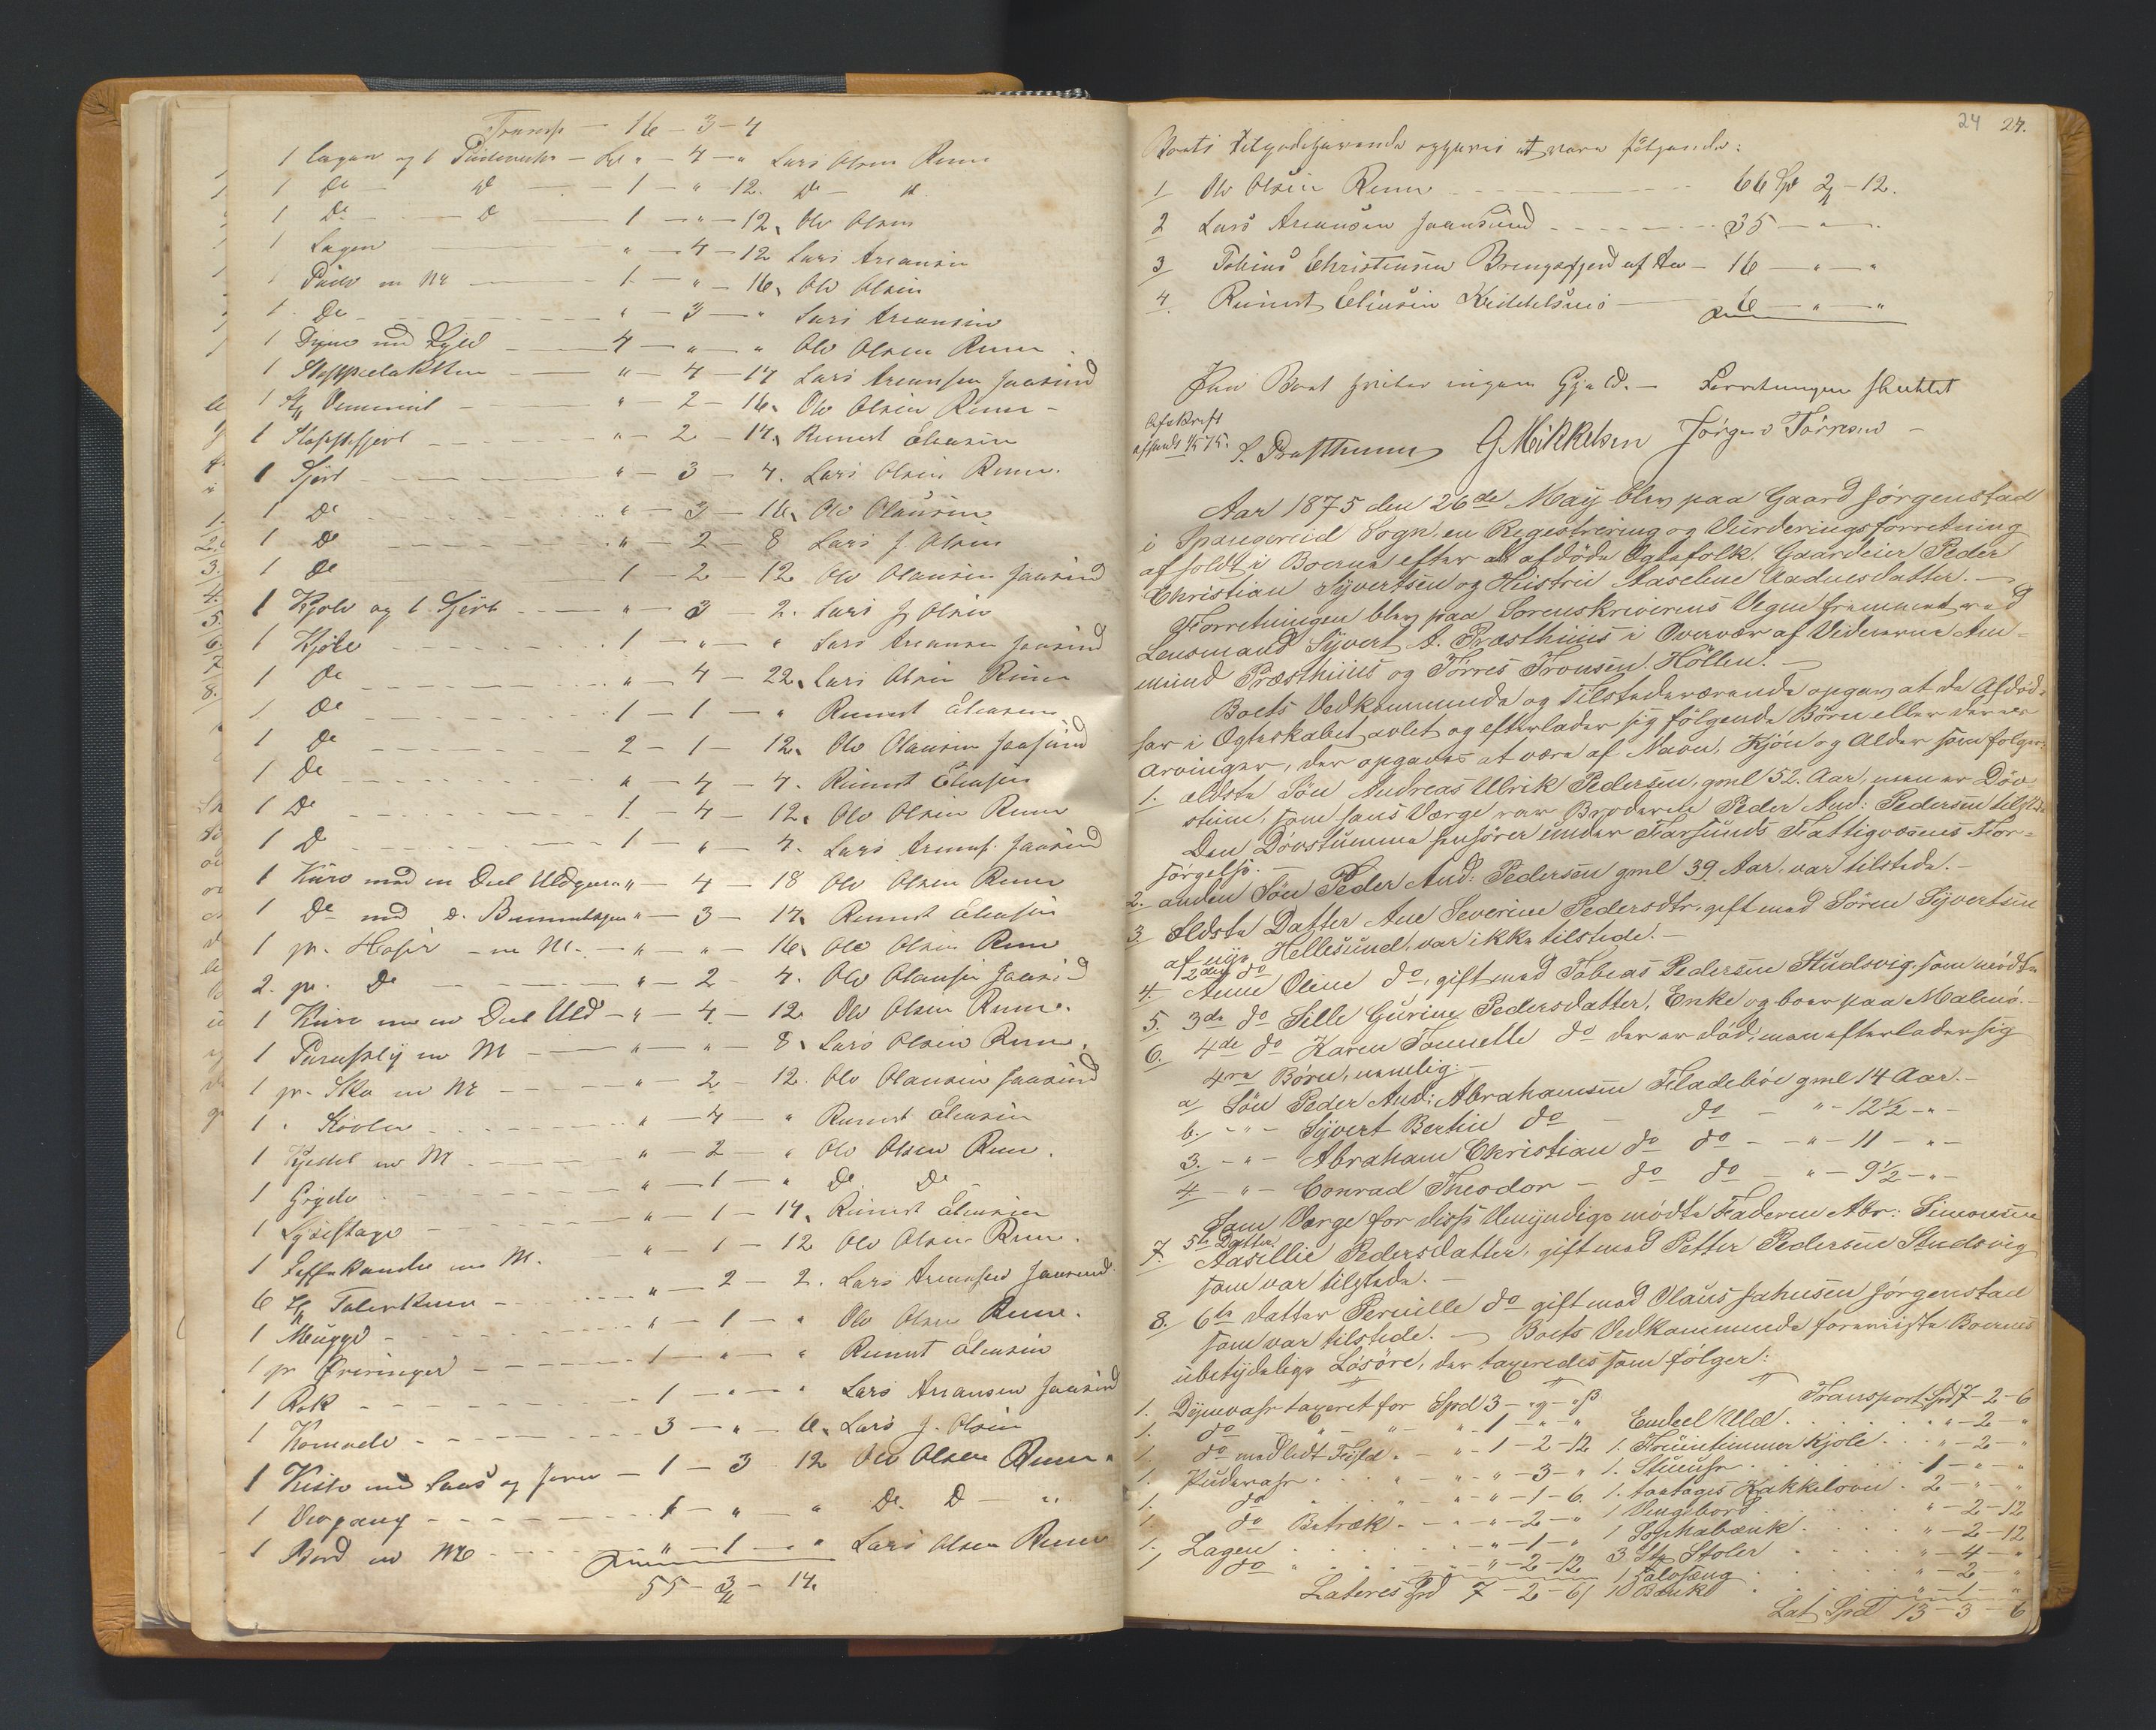 Transp — 16 - 3 - 4
1 Lagen og 1 — - " - 4 - " Lars Olsen Rem
1 do — do — 1 - " 12. do — do
1 do — do — 1 - " - 12, Ole Olsen
1 Lagen — " - 4 - 12 Lars Areansen
1 m M — 1 - " - 16, Ole Olsen
1 do — " - 3 - " Lars Areansen
1 Dyne med Fyld — 4 - " - " Ole Olsen Rem
1 Stoppelakken — " - 4 - 14 Lars Areansen Jaasund
1 — " - 2 - 16, Ole Olsen Rem -
1 — " - 2 - 14, Reinert Eliasen
1 Sjört — " - 3 - 4. Lars Olsen Rem.
1 do — " - 3 - 16, Ole Olausen
1 do — " - 2 - 8 Lars J. Olsen
1 do — 1 - 2 - 12 Ole Olausen Jaasund
1 Kjole og 1 Sjört — " - 3 - 2. Lars J Olsen
1 Kjole — 1 - " - " Lars Areansen Jaasund
1 do — " - 4 - 22, Lars Olsen Rem
1 do — 1 - 1 - " Reinert Eliasen
1 do — 2 - 1 - 12, Ole Olausen Jaasund
1 do — " - 4 - 4. Reinert Eliasen
1 do — 1 - 4 - 12, Ole Olsen Rem
1 do — 1 - " - 4. Lars Areans. Jaasund
1 Kurv med en Deel Uldgarn " - 4 - 18 Ole Olsen Rem
1 do med d. " - 3 - 14, Reinert Eliasen
1 pr. Hoser m M. — " - " - 16, Ole Olsen Rem
2. pr. do — " - 2 - 4. Ole Olausen Jaasund
1 Kurv med en Deel Uld — " - 4 - 12 Ole Olsen Rem.
1 m M — " - " - 8, Lars Olsen Rem.
1 pr. Sko m M — " - 2 - 12. Ole Olausen Jaasund
1 " — " - 4 - " Reinert Eliasen
1 Kjedel m M. — " - 2 - " Ole Olsen Rem.
1 Gryde — " - 1 - " do do
1 Lysestage — " - 1 - 14, Reinert Eliasen
1 Kaffekande m M. — " - 1 - 12 Ole Olsen Rem.
6 St Talerkener — " - 2 - 2. Lars Areansen Jaasund
1 Mugge — " - 1 - " Ole Olsen Rem.
1 pr Öreringer — 1 - " - " Reinert Eliasen
1 Rok — 1 - " - " Lars Areansen Jaasund
1 Komode — 3 - " - 6, Lars J. Olsen
1 Kiste med Laas og — 1 - 3 - 12 Ole Olsen Rem "
1 — 1 - " " do do "
1 Bord m M — " - 1 - " Lars Olsen Rem
55 - 3 - 14.
24 24.
Boets Tilgodehavende opgaves at være følgende:
1 Ole Olsen Rem — 66 Spd 2 - 12.
2 Lars Areansen Jaasund — 35 - " - "
3 Tobias Christensen — 16 - " - "
4. Reinert Eliasen — 6 - " - "
Paa Boet hviler ingen Gjeld. — Forretningen sluttet
Afskrift
S. Præsthuus G Mikkelsen Jörgen Törresen —
Aar 1875 den 26de May blev paa Gaard Jörgenstad
i Spangereid Sogn, en Registrering og Vurderingsforretning
afholdt i Boerne efter de afdöde Ægtefolk, Gaardeier Peder
Christian Syvertsen og Hustru Aaseline Aadnesdatter. —
Forretningen blev paa Sorenskriverens Vegne fremmet ved
Lensmand Syvert A. Præsthuus i Overvær af Vidnerne Am-
mund Præsthuus og Törres Tronsen Höllen. —
Boets Vedkommende og Tilstedeværende opgav at de Afdöde
har i Ægteskabet avlet og efterlader sig fölgende Börn eller deres
Arvinger, der opgaves at være af Navn, Kjön og Alder som fölger:
1. ældste Sön Andreas Ulrik Pedersen, gml 52. Aar, men er Döv-
stum, som hans Værge var Broderen Peder And: Pedersen tilstede.
Den Dövstumme henhörer under Farsunds Fattigvæsens For-
sörgelse. —
2. anden Sön Peder And: Pedersen gml 39 Aar, var tilstede. —
3. Ældste Datter Ane Severine Pedersdtr. gift med Sören Syvertsen
af Hellesund, var ikke tilstede. —
4. 2den do Anne Oline do, gift med Tobias Pedersen Studsvig, som mödte
5. 3de do Sille Gurine Pedersdatter, Enke og boer paa Malmö. —
6. 4de do Karen Tomette do der er död, men efterlader sig
4re Börn, nemlig: —
a Sön Peder And: Abrahamsen Fladebö gml 14 Aar. —
b. - " - Syvert Bertin do — do — " - 12½ - " -
3. - " - Abraham Christian do do — " - 11 - " -
4 - " - Conrad Theodor — do do — " - 9½ - " -
Som Værge for disse Umyndige mödte Faderen Abr: Simonsen
7. 5te Datter Aasillie Pedersdatter, gift med Petter Pedersen Studsvig
som var tilstede. —
8. 6te datter Pernille do gift med Olaus Jahnsen Jörgenstad
som var tilstede. — Boets Vedkommende foreviste Boernes
ubetydelige Lösöre, der taxeredes som fölger:
1. Dynevahr taxeret for Spd 3 - " - "
1. do " — " - 1 - " - "
1. do med lidt Fyld. — " - 1 - 2 - 12
1. Pudevahr — " - " - 3 - "
1. do — " - " - 1 - 6
1. do Betræk — " - " - 2 - "
1. Lagen — " - 1 - "
1 do — " - 2 - 12
Lateres Spd 7 - 2 - 6
Transport Spd 7 - 2 - 6
Endeel Uld — " - 2 - "
1. Fruentimmer Kjole — " - 2 - "
1. Stuuhr — 1 - " - "
1. toetages Kakkelovn — 2 - " - "
1 — " - 2 - 12
1 Sophabænk — " - 2 - 12
3 St Stoler — " - 4 - "
1 — " - 2 - "
1 Bænk — " - 1 - "
Lat Spd 13 - 3 - 6